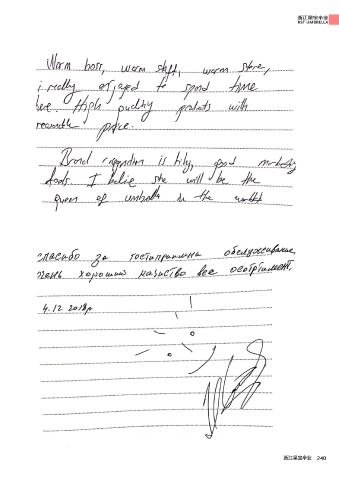 浙江星宝伞业
RST UMBRELLA
Warm boss, warm staff, warm store,
i really enjoyed to spend time
here. High quality products with
reasonable price.
Brand recognition is high, good marketing
I belie she will be the
queen of umbrella in the world
Спасибо за гостоприимна обслуживание,
очень хороший качество все
4.12 2018г
浙江星宝伞业 240